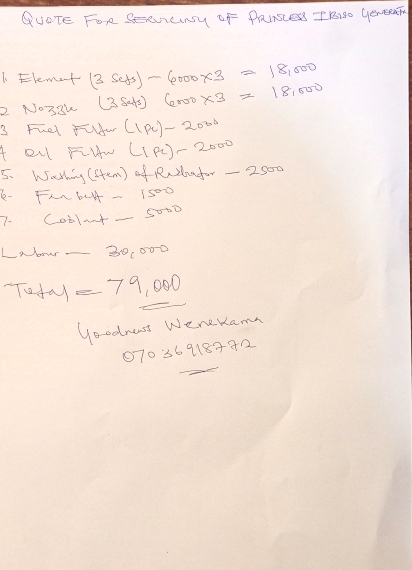 QUOTE FOR SERVICING OF PRINCESS IBISO GENERATOR
1 Element (3 Sets) - 6000 x 3 = 18,000
2 Nozzle (3 Sets) 6000 x 3 = 18,000
3 Fuel Filter (1 Pc) - 2000
4 Oil Filter (1 Pc) - 2000
5. Washing (Stem) of Radiator - 2500
6- Fan belt - 1500
7- Coolant - 5000
Labour - 30,000
Total = 79,000
Goodnews Wenekama
07036918772